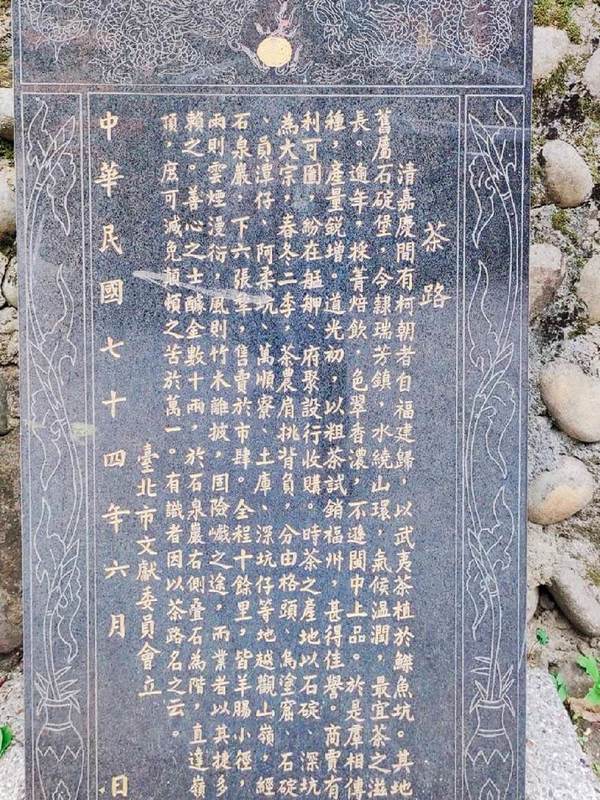 茶路
清嘉慶間有柯朝者自福建歸，以武夷茶植於鰈魚坑。其地
舊屬石碇堡，今隸瑞芳鎮，水繞山環，氣候溫潤，最宜茶之滋
長。逾年，採菁焙飲，色翠香濃，不遜閩中上品。於是羣相傳
種，產量銳增。道光初，以粗茶試銷福州，甚得佳譽。商賈有
利可圖，紛在艋舺、府聚設行收購。時茶之產地以石碇、深坑
為大宗，春冬二季，茶農肩挑背負，分由格頭、烏塗窟、石碇
、員潭仔、阿柔坑、萬順寮、土庫、深坑仔等地越觀山嶺，經
石泉巖，下六張犂，售賣於市肆。全程十餘里，皆羊腸小徑，
雨則雲煙漫衍，風則竹木離披，固險巇之途，而業者以其捷多
賴之。善心之士醵金數十兩，於石泉巖右側疊石為階，直達嶺
頂，庶可減免顛頓之苦於萬一。有識者因以茶路名之云。
臺北市文獻委員會立
中華民國七十四年六月　日